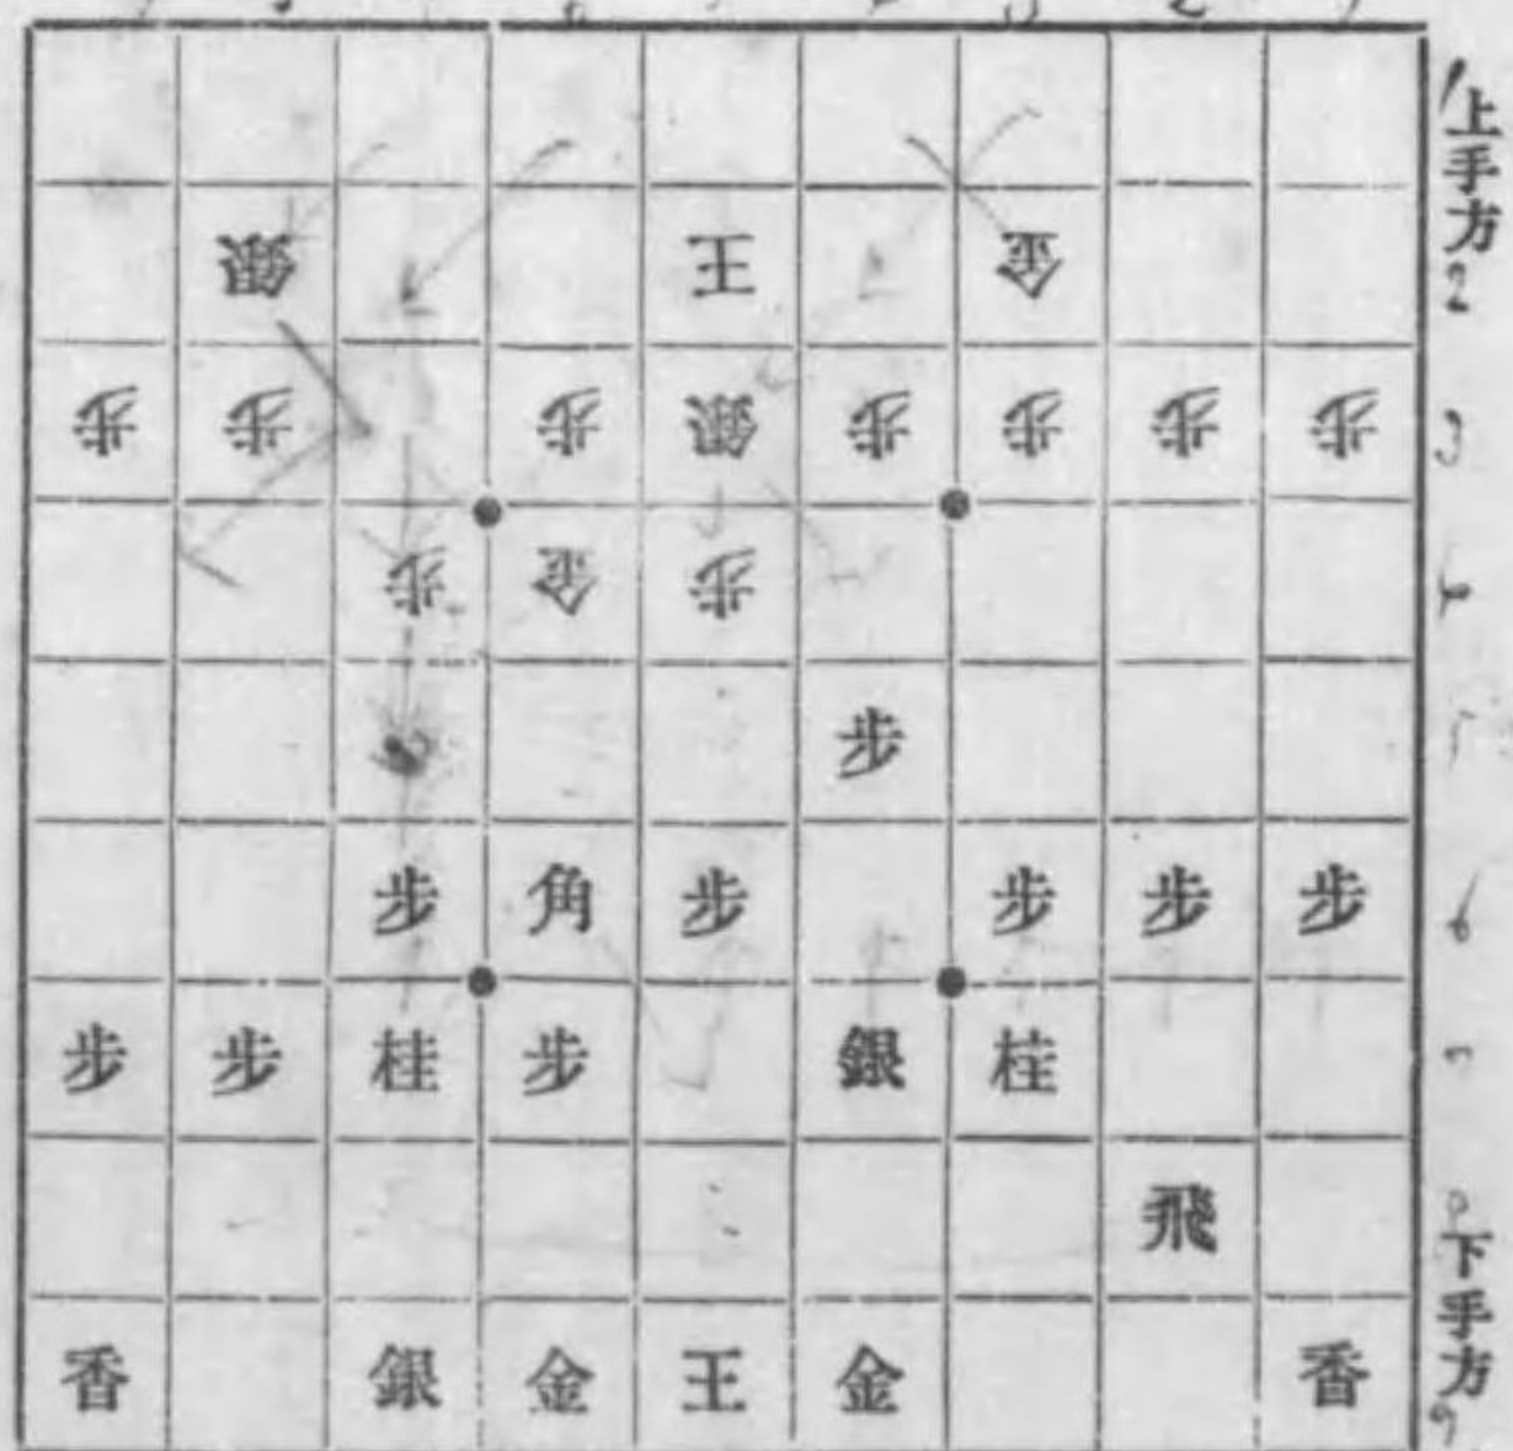 上手方
銀 王 金
歩 歩 歩 銀 歩 歩 歩 歩
歩 金 歩
歩
歩 角 歩 歩 歩 歩
歩 歩 桂 歩 銀 桂
飛
香 銀 金 王 金 香
下手方